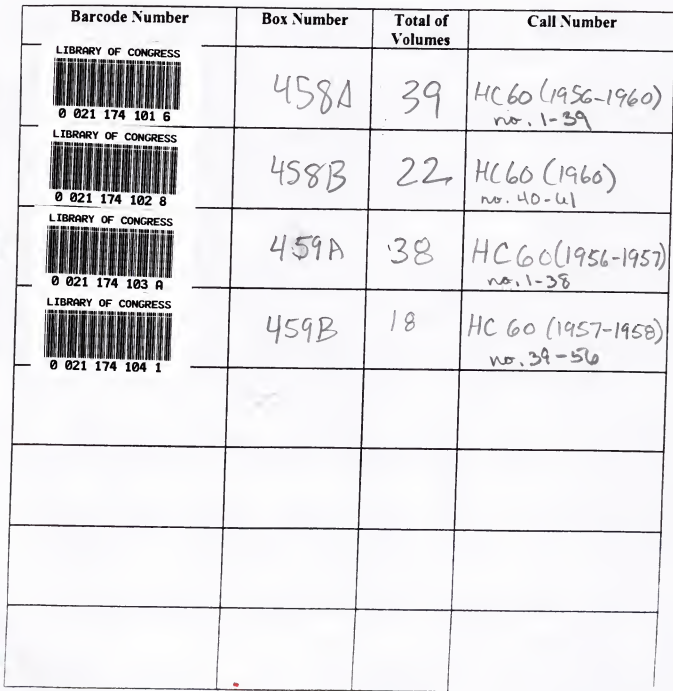 Barcode Number Box Number Total of Volumes Call Number
LIBRARY OF CONGRESS
0 021 174 101 6
458A 39 HC60 (1956-1960)
no. 1-39
LIBRARY OF CONGRESS
0 021 174 102 8
458B 22 HC60 (1960)
no. 40-61
LIBRARY OF CONGRESS
0 021 174 103 A
459A 38 HC60 (1956-1957)
no. 1-38
LIBRARY OF CONGRESS
0 021 174 104 1
459B 18 HC 60 (1957-1958)
no. 39-56